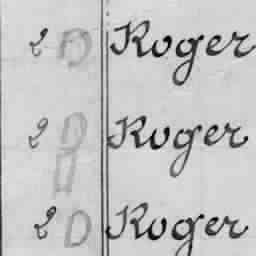 2 D Roger
2 D Roger
2 D Roger